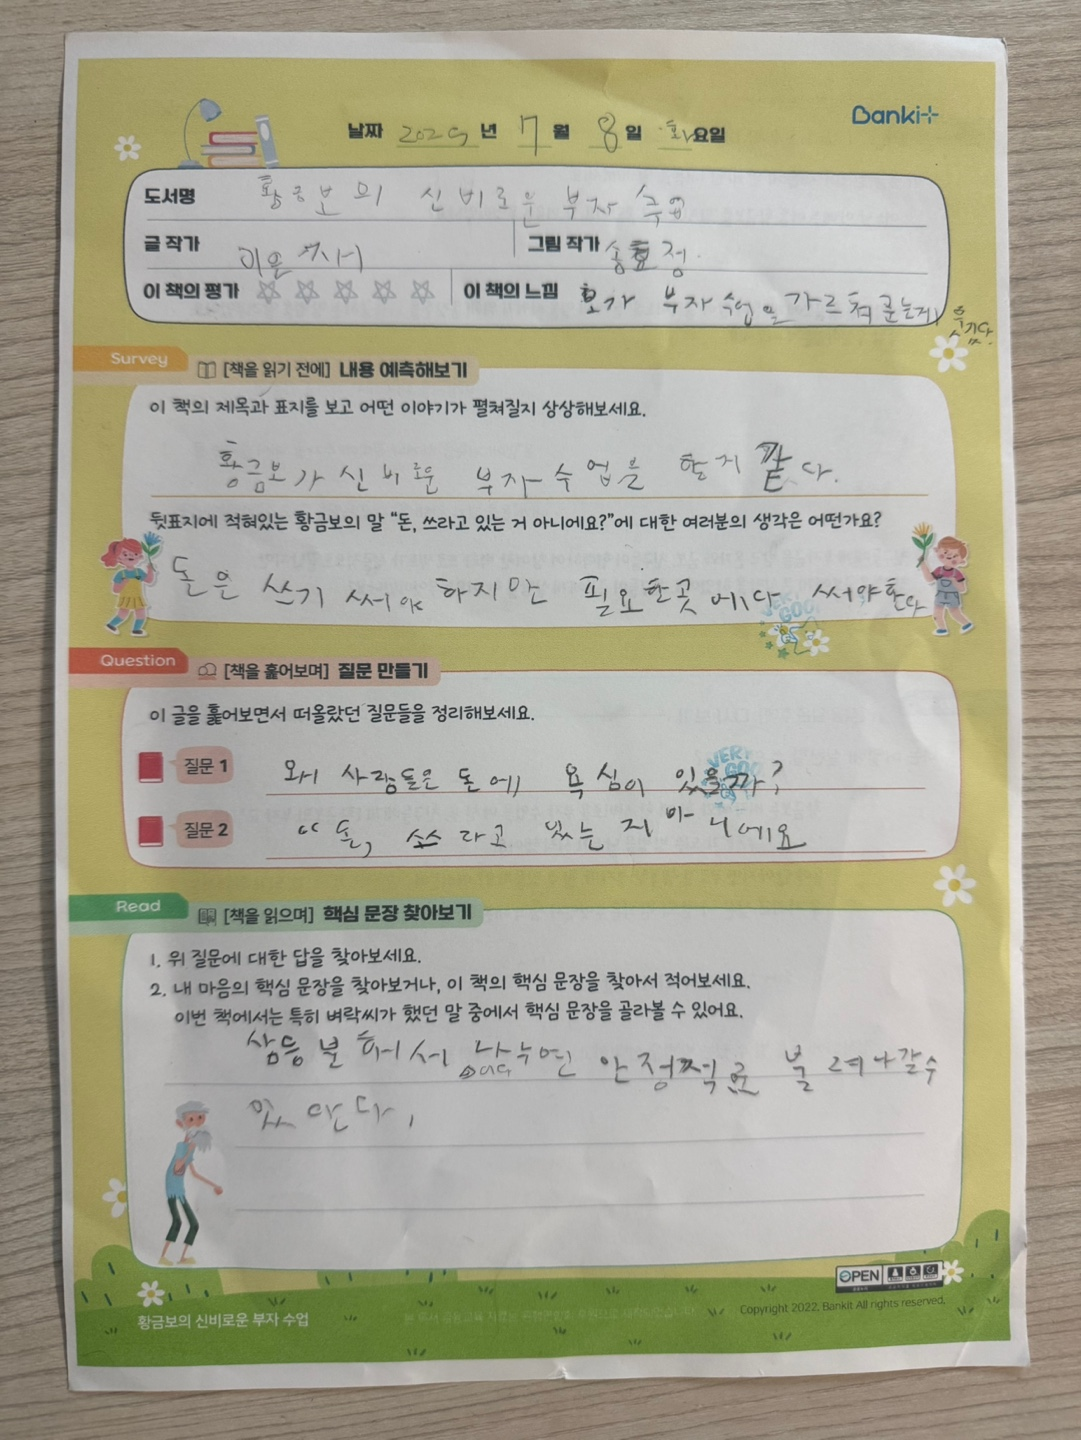 Banki+
날짜 2025 년 7 월 8 일 화요일
도서명 황금보의 신비로운 부자 수업
글 작가 이은서 그림 작가 송효정
이 책의 평가 ☆☆☆☆☆ 이 책의 느낌 부자 수업을 가르쳐 준는게 웃기다.
Survey [책을 읽기 전에] 내용 예측해보기
이 책의 제목과 표지를 보고 어떤 이야기가 펼쳐질지 상상해보세요.
황금보가 신비로운 부자 수업을 할거 같다.
뒷표지에 적혀있는 황금보의 말 “돈, 쓰라고 있는 거 아니에요?”에 대한 여러분의 생각은 어떤가요?
돈은 쓰기 써야 하지만 필요한곳 에다 써야한다
VERY GOOD
Question [책을 훑어보며] 질문 만들기
이 글을 훑어보면서 떠올랐던 질문들을 정리해보세요.
VERY GOOD
질문 1 왜 사람들은 돈에 욕심이 있을까?
질문 2 “돈, 쓰라고 있는 거 아니에요
Read [책을 읽으며] 핵심 문장 찾아보기
1. 위 질문에 대한 답을 찾아보세요.
2. 내 마음의 핵심 문장을 찾아보거나, 이 책의 핵심 문장을 찾아서 적어보세요.
이번 책에서는 특히 벼락씨가 했던 말 중에서 핵심 문장을 골라볼 수 있어요.
삼등분해서 나누면 안정적으로 불려나갈수
있단다.
OPEN
황금보의 신비로운 부자 수업
Copyright 2022. Bankit All rights reserved.